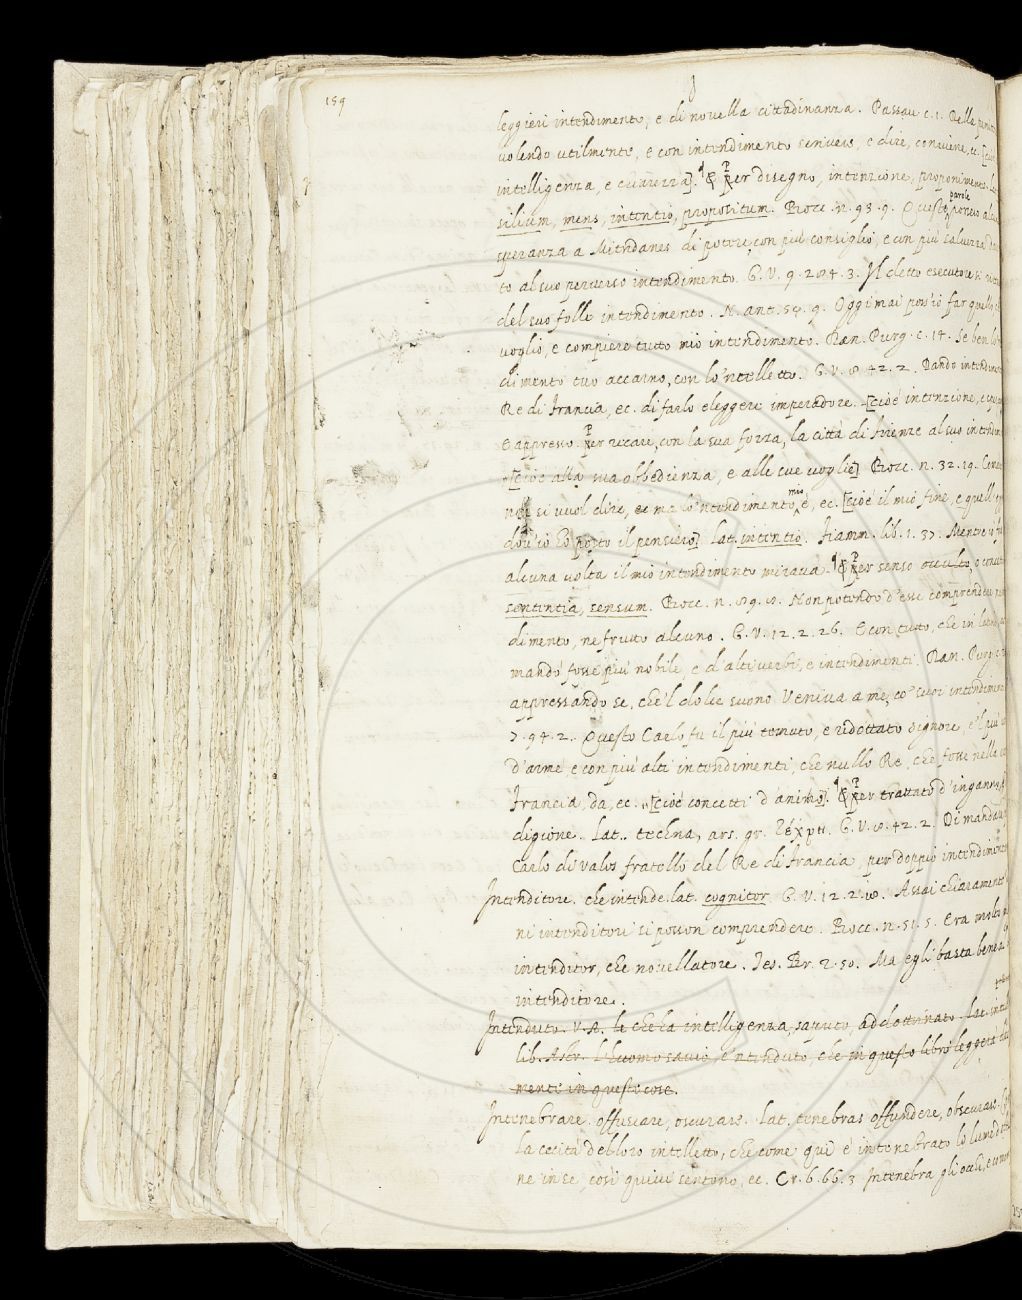 159
leggieri intendimento, e di novella cittadinanza. Passav. c. 1. Della
volendo utilmente, e con intendimento scrivere, e dire, conviene, ec. [cioè
intelligenza, e chiarezza]. ¶ & Per disegno, intenzione, proponimento. Lat.
silium, mens, intentio, propositum. Bocc. n. 93. 9. Queste parole porsero
speranza a Mitridanes di potere, con più consiglio, e con più salvezza
to al suo perverso intendimento. G. V. 9. 204. 3. Il detto esecutore si
del suo folle intendimento. N. ant. 59. 9. Oggimai poss'io far quello,
voglio, e compiere tutto mio intendimento. Dan. Purg. c. 14. Se ben lo
dimento tuo accarno, con lo 'ntelletto. G. V. 8. 42. 2. Dando intendimento
Re di Francia, ec. di farlo eleggere imperadore. [cioè intenzione, e
E appresso. Per recare, con la sua forza, la città di Firenze al suo
[cioè alla sua obbedienza, e alle sue voglie] Bocc. n. 32. 19.
non si vuol dire, ec ma lo 'ntendimento mio è, ec. [cioè il mio fine, e quello
dov' io ho posto il pensiero] Lat. intentio. Fiamm. lib. 1. 37. Mentre
alcuna volta il mio intendimento mirava. ¶ & Per senso occulto, o
sententia, sensum. Bocc. n. 89. 8. Non potendo d'esse comprendere
dimento, ne frutto alcuno. G. V. 12. 2. 26. E con tutto, che in latino
mando fosse più nobile, e d'alti verbi, e intendimenti. Dan. Purg.
appressando se, che 'l dolce suono Veniva a me, co' suoi intendimenti
7. 94. 2. Questo Carlo fu il più temuto, e ridottato signore, e 'l più
d'arme e con più alti intendimenti, che nullo Re, che fosse nella
Francia, da, ec. [cioè concetti d'animo]. ¶ & Per trattato d'inganno,
digione. Lat. techna, ars. gr. τέχνη. G. V. 8. 42. 2. Di mandare
Carlo di Valos fratello del Re di Francia, per doppio intendimento
Intenditore. che intende. lat. cognitor. G. V. 12. 2. 18. Assai chiaramente
ni intenditori si posson comprendere. Bocc. n. 51. 5. Era
intenditor, che novellatore. Tes. Br. 2. 50. Ma egli basta bene
intenditore.
Intenduto. V. A. che ha intelligenza, saputo, addottrinato. Lat.
lib. Astr. L'huomo savio, e 'ntenduto, che in questo libro leggerà
mente in queste cose.
Intenebrare. offuscare, oscurare. Lat. tenebras offundere, obscurare.
La cecità de lloro intelletto, che come qui è intenebrato lo lume
ne in se, così quivi sentono, ec. Cr. 6. 66. 3 Intenebra gli occhi, e